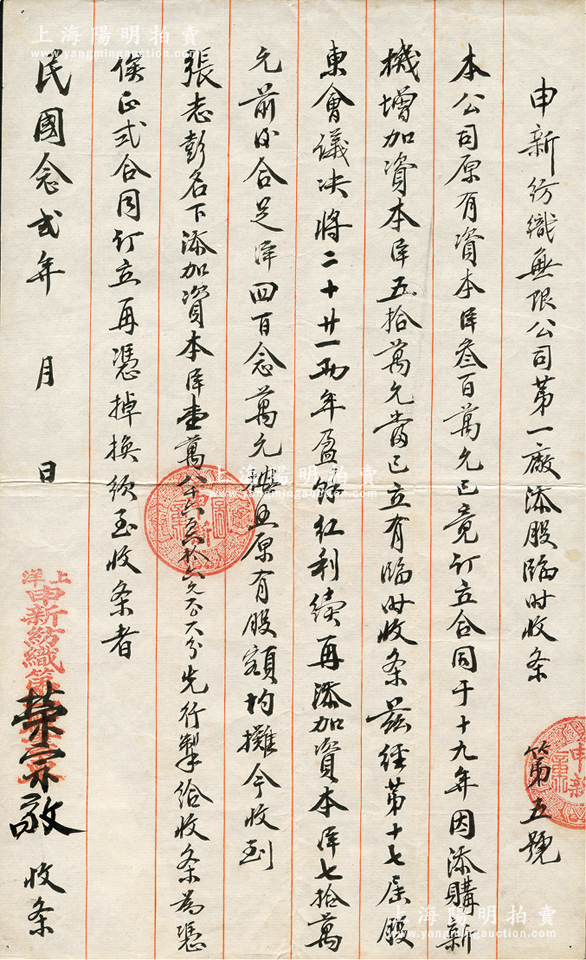 申新紡織無限公司第一廠添股臨时收条　第五號
本公司原有資本洋叁百萬元已竟訂立合同于十九年因添購新
機增加資本洋五拾萬元當已立有臨时收条茲經第十七屆股
東會議决將二十廿一兩年盈餘紅利續再添加資本洋七拾萬
元前後合足洋四百念萬元攤且原有股額均攤今收到
張志彭名下添加資本洋壹萬八千六百六拾六元六角六分先行掣給收条為憑
俟正式合同訂立再憑掉換須至收条者
民國念弍年　月　日
上洋
申新紡織第
榮宗敬　收条
申新
上海陽明拍賣
www.yangmingauction.com
上海陽明拍賣
www.yangmingauction.com
上海陽明拍賣
www.yangmingauction.com